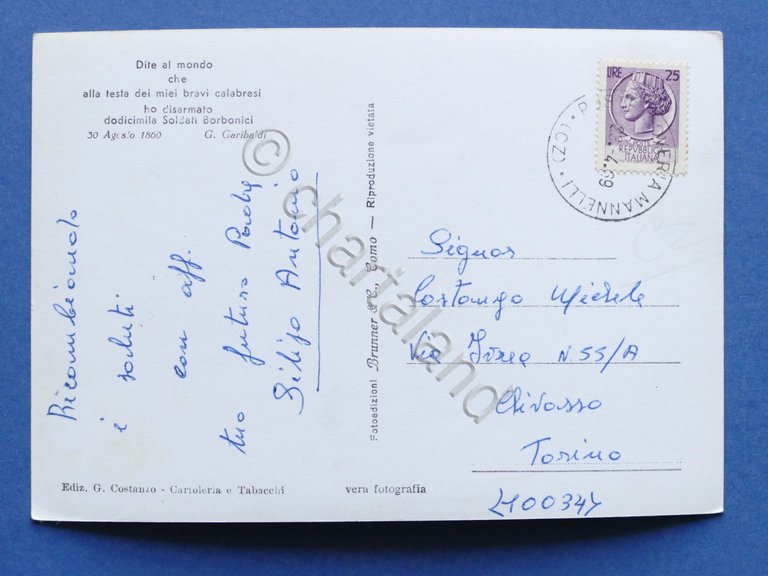 Dite al mondo
che
alla testa dei miei bravi calabresi
ho disarmato
dodicimila Soldati Borbonici
30 Agosto 1860 G. Garibaldi
Ricambiando
i saluti
con aff.
tuo futuro Padre
Antonio
Fotoedizioni Brunner & C., Como — Riproduzione vietata
LIRE 25
REPVBBLICA
ITALIANA
MANNELLI (CZ)
4.69
Signor
Costanzo Michele
Via Ivrea N. 55/A
Chivasso
Torino
Ediz. G. Costanzo - Cartoleria e Tabacchi
vera fotografia
© chartaland